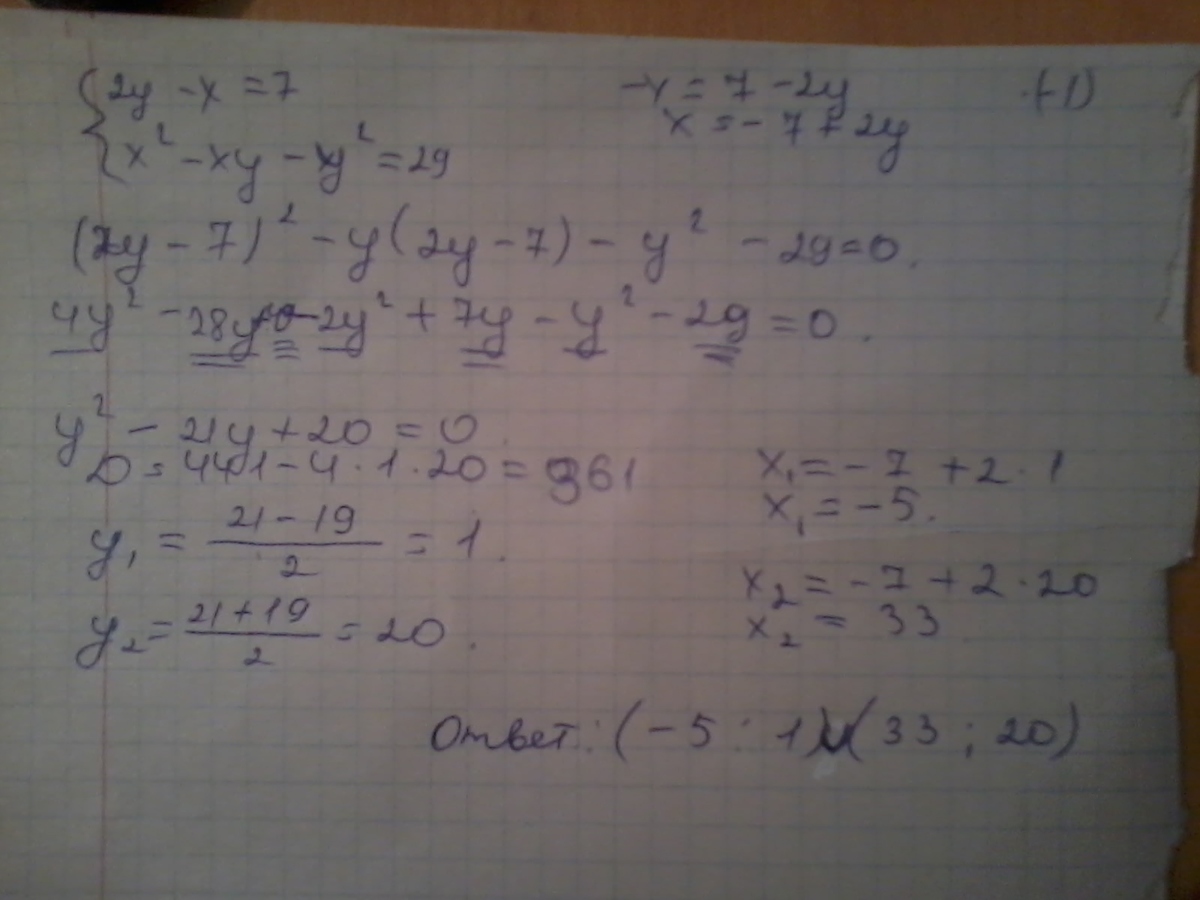 { 2y - x = 7
x² - xy - y² = 29
-x = 7 - 2y
x = -7 + 2y
·(-1)
(2y - 7)² - y(2y - 7) - y² - 29 = 0.
4y² - 28y - 2y² + 7y - y² - 29 = 0.
y² - 21y + 20 = 0.
D = 441 - 4·1·20 = 361
y₁ = (21 - 19)/2 = 1.
y₂ = (21 + 19)/2 = 20.
x₁ = -7 + 2·1
x₁ = -5.
x₂ = -7 + 2·20
x₂ = 33
Ответ: (-5 ; 1) и (33 ; 20)